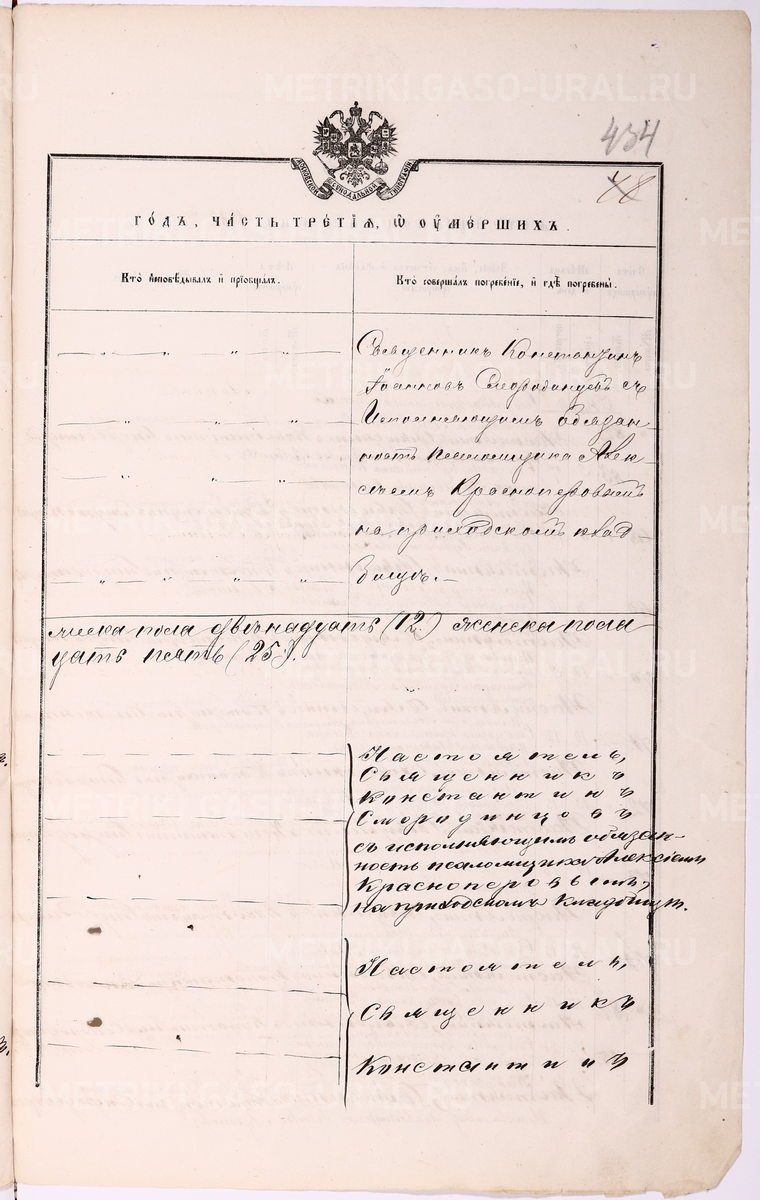 METRIKI.GASO-URAL.RU
434
48
МОСКОВСКОЙ СИНОДАЛЬНОЙ ТИПОГРАФІИ
ГО́ДЪ, ЧА́СТЬ ТРЕ́ТІЯ, Ѡ ОУМЕ́РШИХЪ.
Кто̀ и҆сповѣ́дывалъ и҆ прїобща́лъ.
Кто̀ соверша́лъ погребе́нїе, и҆ гдѣ̀ погребены̀.
Священникъ Константинъ
Іоанновъ Смородинцевъ съ
Исполняющимъ обязан-
ность Псаломщика Алек-
сѣемъ Красноперовымъ
на приходскомъ клад-
бищѣ. —
мужска пола двѣнадцать (12) женска пола
цать пять (25).
Настоятель,
Священникъ
Константинъ
Смородинцовъ
съ исполняющимъ обязан-
ность псаломщика Алексіемъ
Красноперовымъ,
на приходскомъ кладбищѣ.
Настоятель,
Священникъ
Константинъ